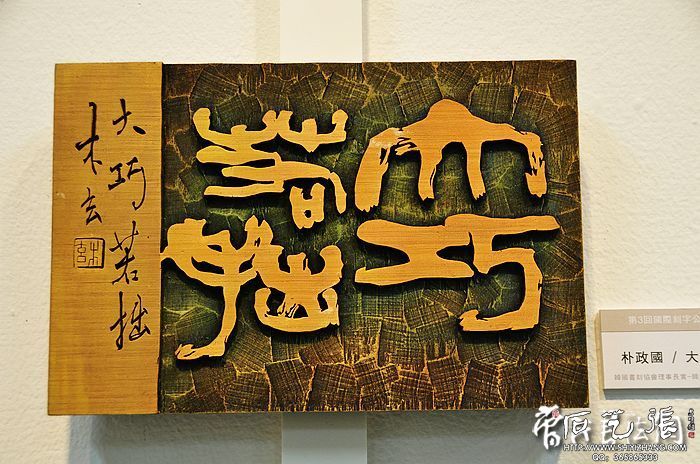 大巧
若拙
大巧若拙
木玄
第3回国際刻字公
朴政國 / 大
韓國書刻協會理事長賞-韓
HTTP://WWW.SHIYIZHANG.COM
QQ: 365865933